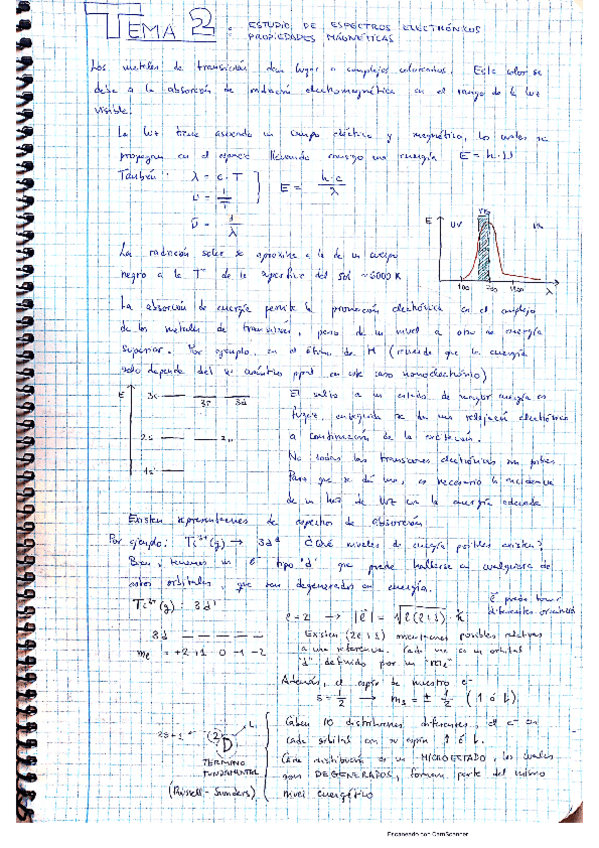 TEMA 2. ESTUDIO DE ESPECTROS ELECTRÓNICOS
PROPIEDADES MAGNÉTICAS
Los metales de transición dan lugar a complejos coloreados. Este color se
debe a la absorción de radiación electromagnética en el rango de la luz
visible.
La luz tiene asociado un campo eléctrico y magnético, los cuales se
propagan en el espacio llevando consigo una energía E = h·ν
También: λ = c·T
ν = 1/T
ν̄ = 1/λ
E = h·c/λ
E UV
100 700
λ
La radiación solar se aproxima a la de un cuerpo
negro a la Tª de la superficie del sol ~6000 K
La absorción de energía permite la promoción electrónica en el complejo
de los metales de transición, pasa de un nivel a otro de energía
superior. Por ejemplo, en el átomo de H (recuerdo que la energía
solo depende del nº cuántico ppal en este caso monoelectrónico)
E 3s 3p 3d
2s 2p
1s
El salto a un estado de mayor energía es
fugaz, enseguida se da una relajación electrónica
a continuación de la excitación.
No todas las transiciones electrónicas son posibles.
Para que se dé una, es necesario la incidencia
de un haz de luz con la energía adecuada
Existen representaciones de espectros de absorción
Por ejemplo: Ti³⁺(g) → 3d¹ ¿Qué niveles de energía posibles existen?
Bien, tenemos un e⁻ tipo "d" que puede hallarse en cualquiera de
estos orbitales, que son degenerados en energía.
Ti³⁺(g): 3d¹
l = 2 → |l| = √l(l+1) · ħ
e⁻ puede tener
diferentes
3d
ml = +2 +1 0 -1 -2
Existen (2l+1) orientaciones posibles relativas
a una referencia. Cada una es un orbital
"d" definido por un "ml"
Además, el espín de nuestro e⁻
s = 1/2 → ms = ± 1/2 (↑ ó ↓)
2s+1 (2)D L
TÉRMINO
FUNDAMENTAL
(Russell-Saunders)
Caben 10 distribuciones diferentes, el e⁻ en
cada orbital con su espín ↑ ó ↓.
Cada distribución es un MICROESTADO, los cuales
son DEGENERADOS, forman parte del mismo
nivel energético
Escaneado con CamScanner